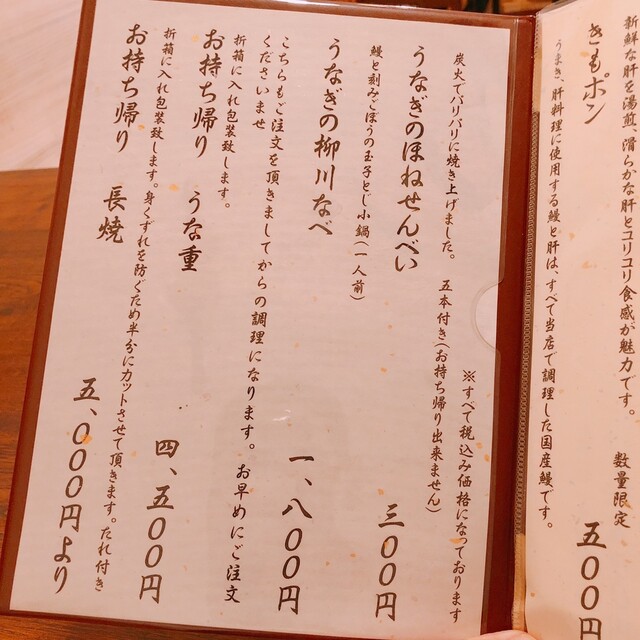 新鮮な肝を湯煎 滑らかな肝とコリコリ食感が魅力です。
きもポン
数量限定
五〇〇円
うまき、肝料理に使用する鰻と肝は、すべて当店で調理した国産鰻です。
※すべて税込み価格になっております
炭火でパリパリに焼き上げました。 五本付き(お持ち帰り出来ません)
うなぎのほねせんべい 三〇〇円
鰻と刻みごぼうの玉子とじ小鍋(一人前)
うなぎの柳川なべ 一、八〇〇円
こちらもご注文を頂きましてからの調理になります。お早めにご注文
くださいませ
折箱に入れ包装致します。
お持ち帰り うな重 四、五〇〇円
折箱に入れ包装致します。身くずれを防ぐため半分にカットさせて頂きます。たれ付き
お持ち帰り 長焼 五、〇〇〇円より